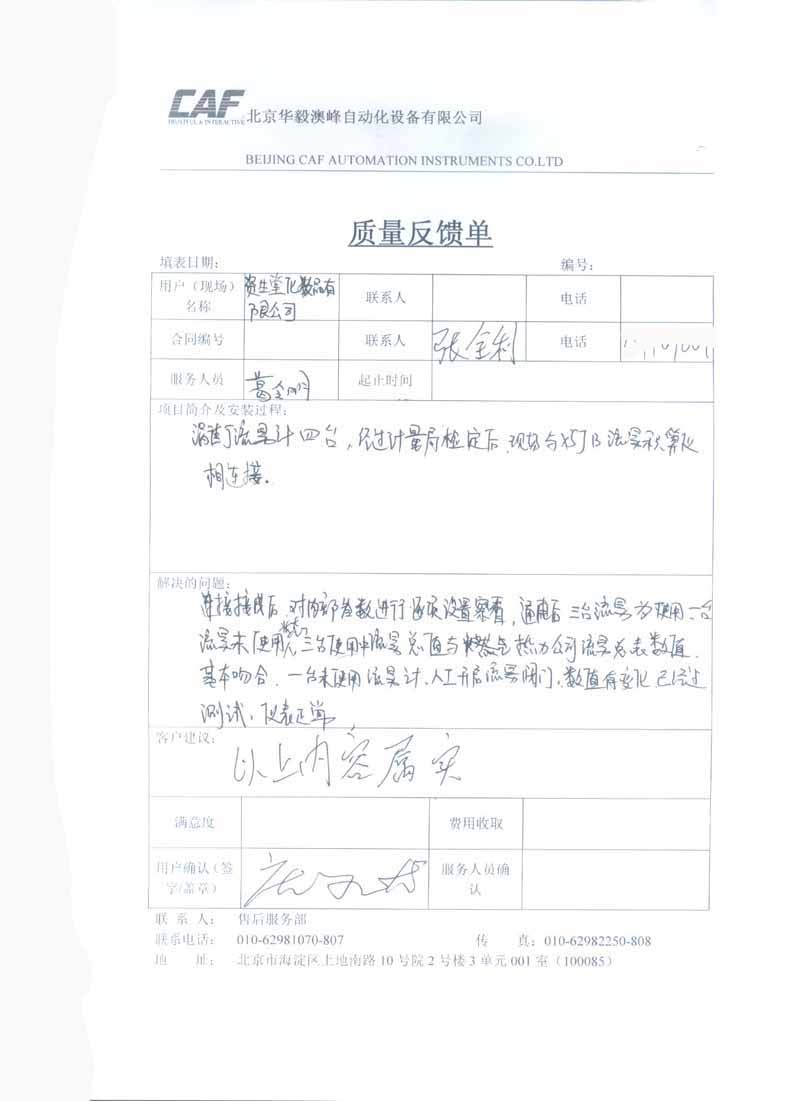 CAF
北京华毅澳峰自动化设备有限公司
BEIJING CAF AUTOMATION INSTRUMENTS CO.LTD
质量反馈单
填表日期： 编号：
用户（现场）名称 资生堂化妆品有限公司 联系人 电话
合同编号 联系人 张全利 电话
服务人员 葛金明 起止时间
项目简介及安装过程：
涡街流量计四台，经过计量局检定后，现场与XSJB流量积算仪
相连接。
解决的问题：
连接接线后，对内部参数进行逐项设置察看，通电后三台流量为使用，一台
流量未使用，三台使用中流量总值与燃气热力公司流量总表数值
基本吻合，一台未使用流量计，人工开启流量阀门，数值有变化已经过
测试，仪表正常
客户建议：
以上内容属实
满意度 费用收取
用户确认（签字/盖章） 服务人员确认
联 系 人： 售后服务部
联系电话： 010-62981070-807 传 真：010-62982250-808
地 址： 北京市海淀区上地南路 10 号院 2 号楼 3 单元 001 室（100085）